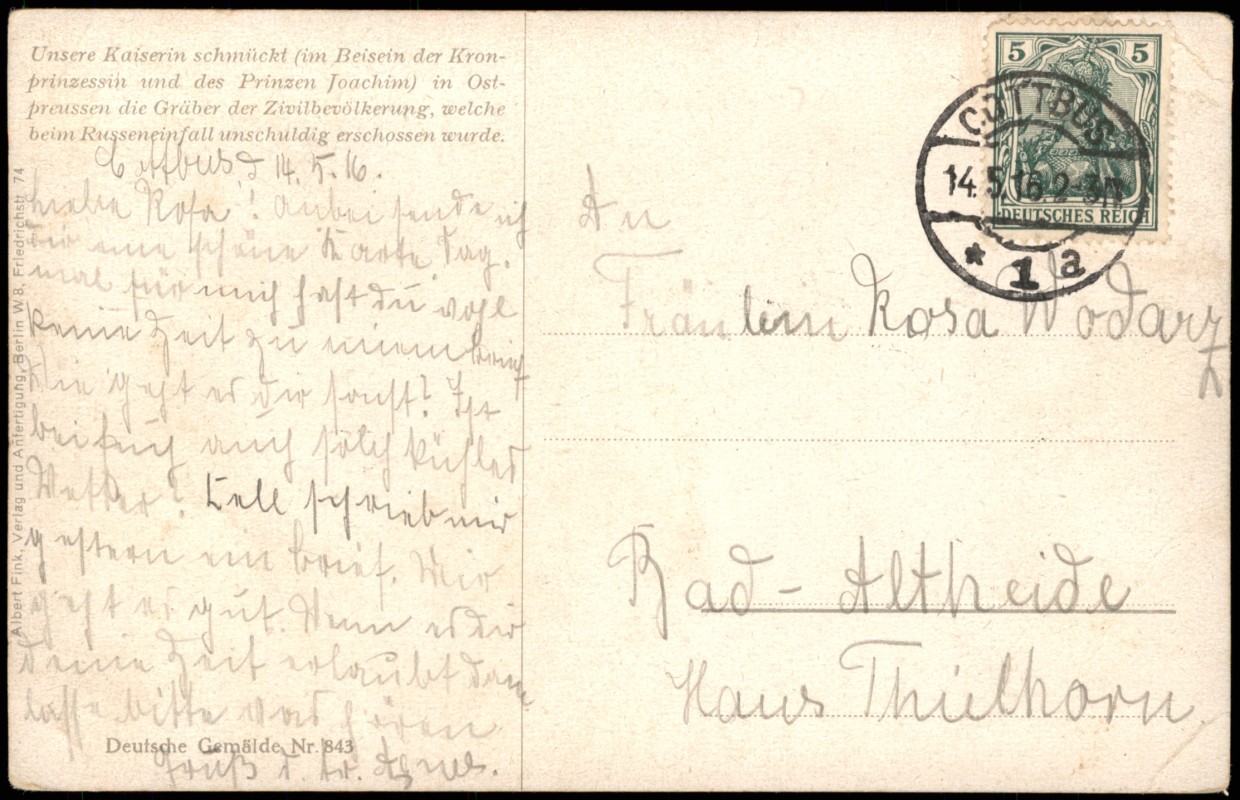 Unsere Kaiserin schmückt (im Beisein der Kron-
prinzessin und des Prinzen Joachim) in Ost-
preussen die Gräber der Zivilbevölkerung, welche
beim Russeneinfall unschuldig erschossen wurde.
Cottbus d 14.5.16.
Liebe Rosa! Anbei sende ich
dir eine schöne Karte. Sag.
mal für mich hast du wohl
keine Zeit zu einem brief
Wie geht es dir sonst? Ist
bei Euch auch solch kühles
Wetter? Kell schrieb mir
gestern ein brief. Mir
geht es gut. Wenn es dir
deine Zeit erlaubt dann
lasse bitte was hören
Gruß d. tr. Agnes.
Deutsche Gemälde Nr. 843
Albert Fink, Verlag und Anfertigung, Berlin W 8, Friedrichstr. 74
5 5
DEUTSCHES REICH
COTTBUS
14.5.16.2-3N
* 1 a
An
Fräulein Rosa Wodarz
Bad-Altheide
Haus Thielhorn